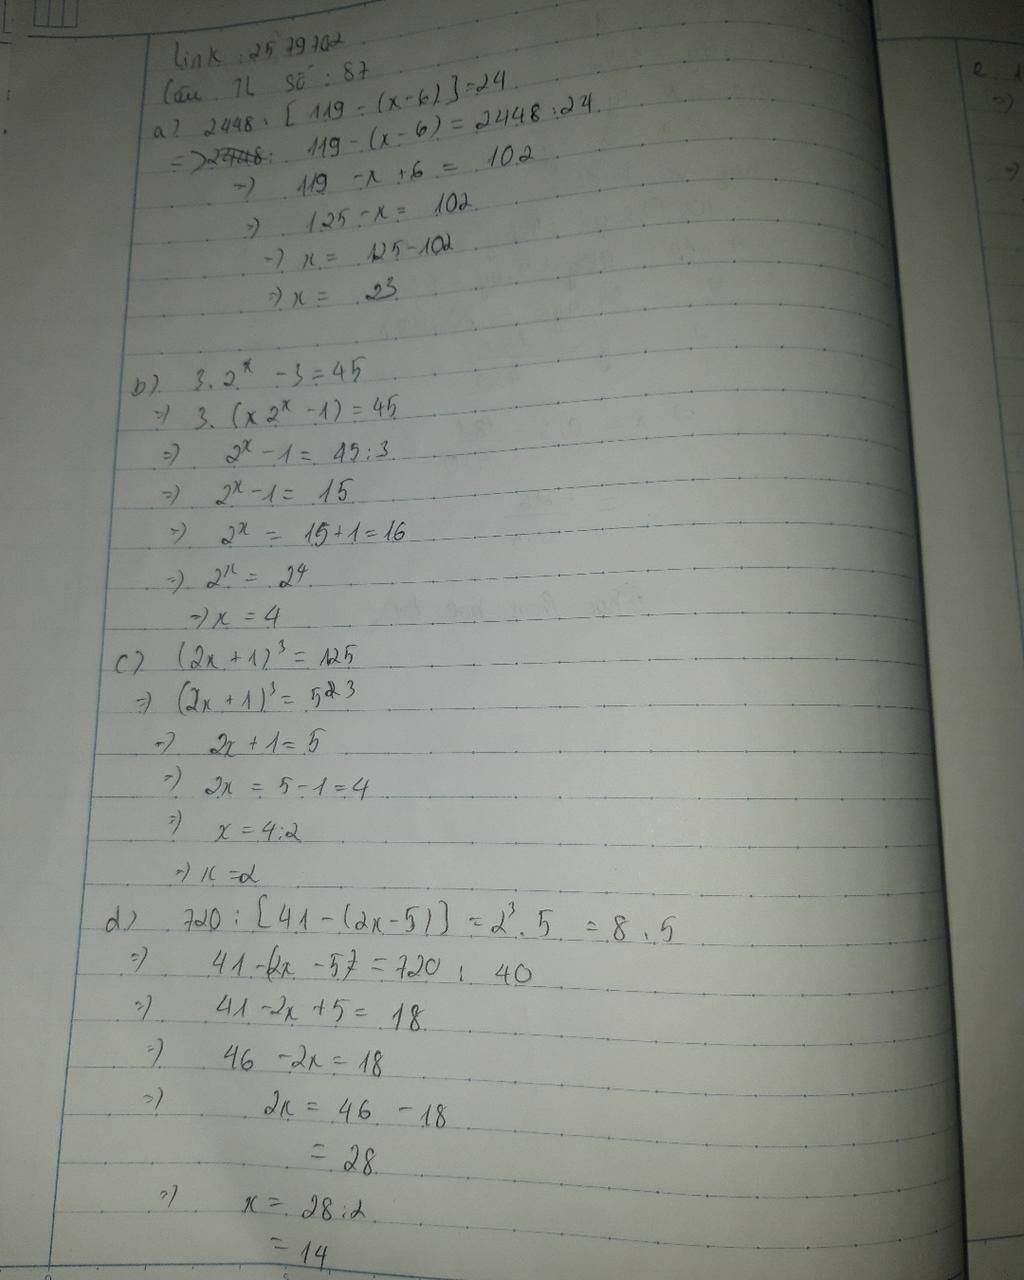 link : 2579702
Câu TL số : 87
a) 2448 : [ 119 - (x-6) ] = 24
=> 119 - (x-6) = 2448 : 24
=> 119 - x + 6 = 102
=> 125 - x = 102
=> x = 125 - 102
=> x = 23
b) 3. 2ˣ - 3 = 45
=> 3. (x 2ˣ - 1) = 45
=> 2ˣ - 1 = 45 : 3
=> 2ˣ - 1 = 15
=> 2ˣ = 15 + 1 = 16
=> 2ˣ = 2⁴
=> x = 4
c) (2x + 1)³ = 125
=> (2x + 1)³ = 5³
=> 2x + 1 = 5
=> 2x = 5 - 1 = 4
=> x = 4 : 2
=> x = 2
d) 720 : [ 41 - (2x - 5) ] = 2³ . 5 = 8 . 5
=> 41 - (2x - 5) = 720 : 40
=> 41 - 2x + 5 = 18
=> 46 - 2x = 18
=> 2x = 46 - 18
= 28
=> x = 28 : 2
= 14